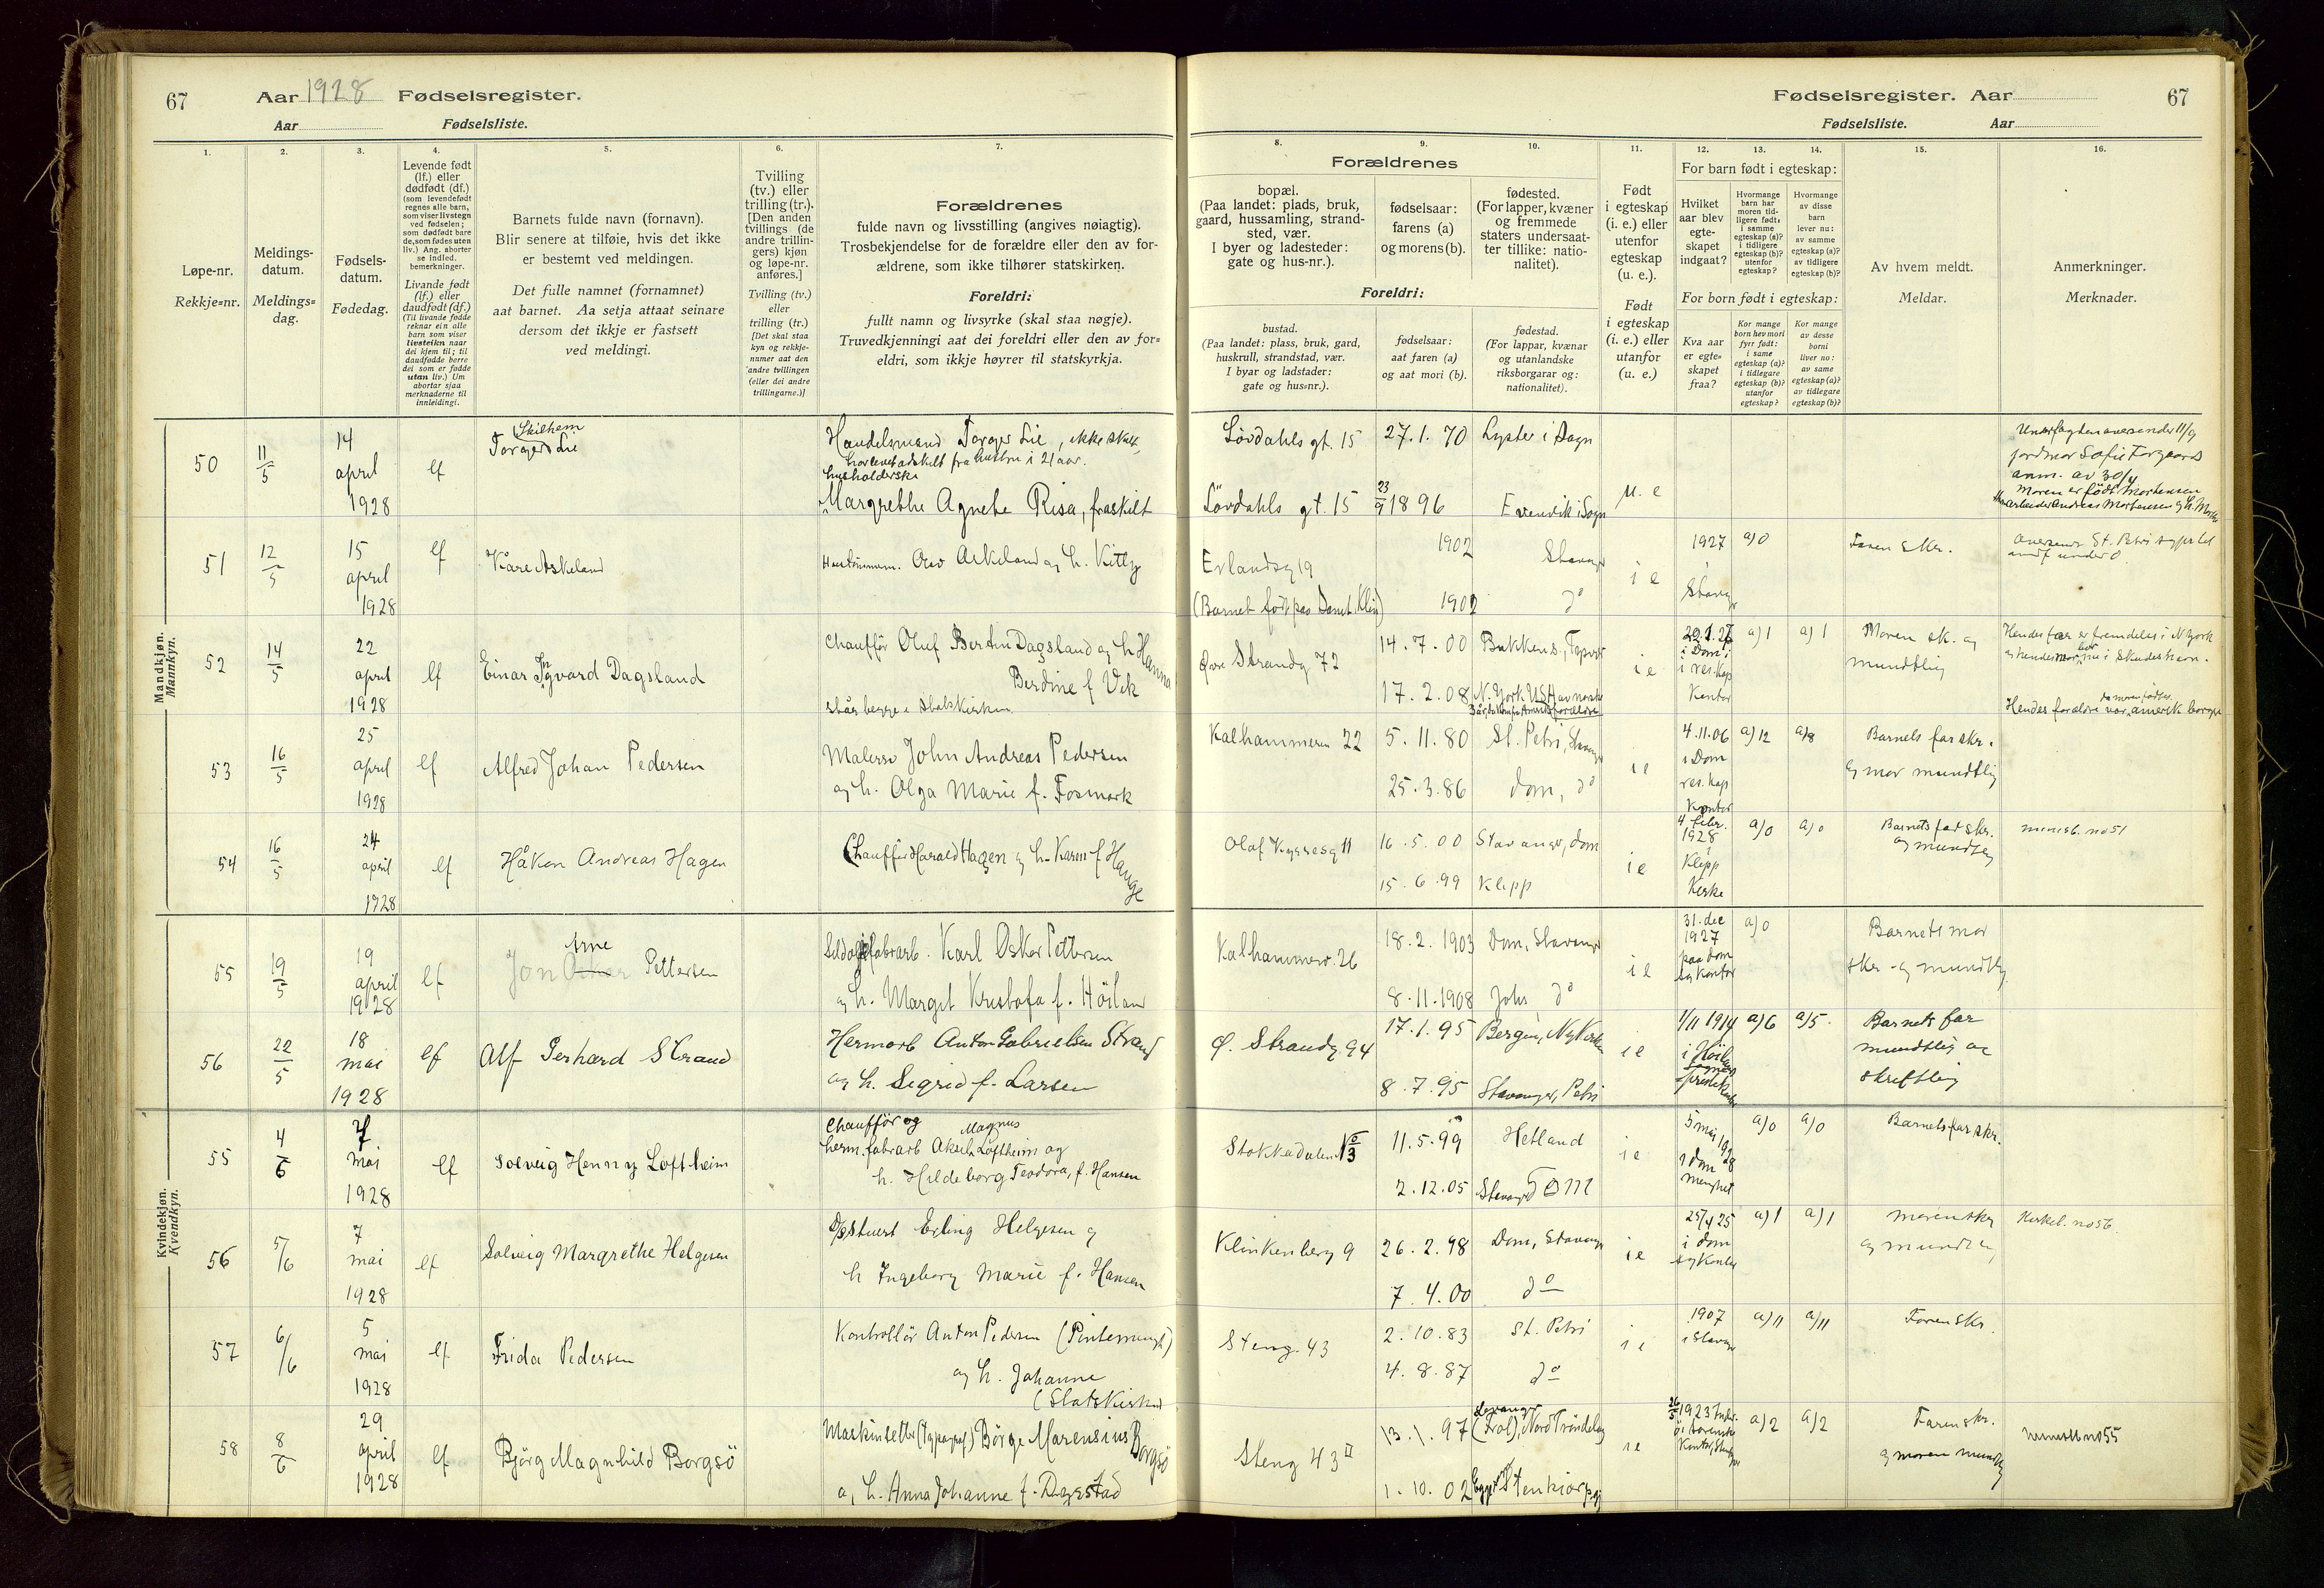 67 Aar 1928 Fødselsregister.
Aar Fødselsliste.
Fødselsregister. Aar 67
Fødselsliste. Aar
1. 2. 3. 4. 5. 6. 7.
8. 9. 10. 11. 12. 13. 14. 15. 16.
Løpe-nr.
Rekkje=nr.
Meldings-
datum.
Meldings=
dag.
Fødsels-
datum.
Fødedag.
Levende født
(lf.) eller
dødfødt (df.)
(som levendefødt
regnes alle barn,
som viser livstegn
ved fødselen;
som dødfødt bare
de, som fødes uten
liv.) Ang. aborter
se indled.
bemerkninger.
Livande født
(lf.) eller
daudfødt (df.)
(Til livande fødde
reknar ein alle
barn som viser
livsteikn naar
dei kjem til; til
daudfødde berre
dei som er fødde
utan liv.) Um
abortar sjaa
merknaderne til
innleidingi.
Barnets fulde navn (fornavn).
Blir senere at tilføie, hvis det ikke
er bestemt ved meldingen.
Det fulle namnet (fornamnet)
aat barnet. Aa setja attaat seinare
dersom det ikkje er fastsett
ved meldingi.
Tvilling
(tv.) eller
trilling (tr.).
[Den anden
tvillings (de
andre trillin-
gers) kjøn
og løpe-nr.
anføres.]
Tvilling (tv.)
eller
trilling (tr.)
[Det skal staa
kyn og rekkje-
numer aat den
andre tvillingen
(eller dei andre
trillingarne.)]
Forældrenes
fulde navn og livsstilling (angives nøiagtig).
Trosbekjendelse for de forældre eller den av for-
ældrene, som ikke tilhører statskirken.
Foreldri:
fullt namn og livsyrke (skal staa nøgje).
Truvedkjenningi aat dei foreldri eller den av for=
eldri, som ikkje høyrer til statskyrkja.
Forældrenes
bopæl.
(Paa landet: plads, bruk,
gaard, hussamling, strand-
sted, vær.
I byer og ladesteder:
gate og hus-nr.).
fødselsaar:
farens (a)
og morens (b).
fødested.
(For lapper, kvæner
og fremmede
staters undersaat-
ter tillike: natio-
nalitet).
Foreldri:
bustad.
(Paa landet: plass, bruk, gard,
huskrull, strandstad, vær.
I byar og ladstader:
gate og hus=nr.).
fødselsaar:
aat faren (a)
og aat mori (b).
fødestad.
(For lappar, kvænar
og utanlandske
riksborgarar og:
nationalitet).
Født
i egteskap
(i. e.) eller
utenfor
egteskap
(u. e.).
Født
i egteskap
(i. e.) eller
utanfor
(u. e.)
For barn født i egteskap:
Hvilket
aar blev
egte-
skapet
indgaat?
Hvormange
barn har
moren tid-
ligere født:
i samme
egteskap (a)?
i tidligere
egteskap (b)?
utenfor
egteskap?
Hvormange
av disse
barn
lever nu:
av samme
egteskap (a)?
av tidligere
egteskap (b)?
For born født i egteskap:
Kva aar
er egte=
skapet
fraa?
Kor mange
born hev mori
fyrr født:
i same
egteskap (a)?
i tidlegare
egteskap (b)?
utanfor
egteskap?
Kor mange
av desse
borni
liver no:
av same
egteskap (a)?
av tidlegare
egteskap (b)?
Av hvem meldt.
Meldar.
Anmerkninger.
Merknader.
Mandkjøn.
Mannkyn.
50 11/5 14 april 1928 lf Skilhem
Torger Lie
Handelsmand Torger Lie, ikke skilt,
har levet adskilt fra hustru i 21 aar.
husholderske
Margrethe Agnete Risa, fraskilt
Lövdahls gt. 15 27.1.70 Lyster i Sogn
Lövdahls gt. 15 23/9 1896 Evenvik i Sogn u. e
jordmor Sofie Torgaard
anm. av 30/4
Moren er født Mortensen
51 12/5 15 april 1928 lf Kåre Askeland
Askeland og h. Kitty
Erlandsg 19 1902 Stavanger
(Barnet født paa 1902 do
i e 1927 Stavgr a)0
52 14/5 22 april 1928 lf Einar Ingvard Dagsland
Chauffør Oluf Bertin Dagsland og h Hanna
Berdine f. Vik
står begge i Statskirken
Øvre Strandg 72 14.7.00
17.2.08 N. York USA av norske
i e 29.1.27 i Dom i res. kap Kontor a)1 a)1
Moren sk. og
mundtlig
Hendes far er fremdeles i N York
53 16/5 25 april 1928 lf Alfred Johan Pedersen
Malersv John Andreas Pedersen
og h. Olga Marie f. Fosmark
Kalhammeren 22 5.11.80 St. Petri, Stavgr
25.3.86 Dom, do
i e 4.11.06 i Dom res. kap Kontor a)12 a)8
Barnets far skr.
og mor mundtlig
54 16/5 24 april 1928 lf Håkon Andreas Hagen
Chauffør Harald Hagen og h. Karen f. Hauge
Olaf Kyrresg 11 16.5.00 Stavanger, dom
15.6.99 Klepp
i e 4 febr. 1928 i Klepp Kirke a)0 a)0
Barnets far skr.
og mundtlig
minist. no 51
55 19/5 19 april 1928 lf Arne
Jon Oskar Pettersen
Karl Oskar Pettersen
og h. Margit Kristofa f. Höiland
Kalhammerv. 26 18.2.1903 Dom, Stavanger
8.11.1908 Johs do
i e 31. dec 1927 paa dom sg kontor a)0
Barnets mor
skr. og mundtlig
56 22/5 18 mai 1928 lf Alf Gerhard Strand
Hermarb Anton Gabrielsen Strand
og h. Sigrid f. Larsen
Ø. Strandg 94 17.1.95 Bergen, Nykirken
8.7.95 Stavanger, Petri
i e 1/11 1914 a)6 a)5.
Barnets far
mundtlig og
skriftlig
Kvindekjøn.
Kvendkyn.
55 4/6 7 mai 1928 lf Solveig Henny Loftheim
Chauffør og Magnus
herm. fabrarb Aksel Loftheim og
h. Hildeborg Teodora, f. Hansen
Stokkadalen 11.5.99 Hetland
2.12.05 Stavanger Dom
i e 5 mai 1928 i Dom menighet a)0 a)0
Barnets far skr.
56 5/6 7 mai 1928 lf Solveig Margrethe Helgesen
D/s stuert Erling Helgesen og
h Ingeborg Marie f. Hansen
Klinkenberg 9 26.2.98 Dom, Stavanger
7.4.00 do
i e 25/4 25 i dom sg Kontor a)1 a)1
moren skr
og mundtlig
Kirkeb. no 56.
57 6/6 5 mai 1928 lf Frida Pedersen
Kontrollör Anton Pedersen (Pintemenigh)
og h. Johanne
(Statskirken)
Steng. 43 2.10.83 St. Petri
4.8.87 do
i e 1907 i Stavgr a)11 a)11
Faren skr.
58 8/6 29 april 1928 lf Björg Magnhild Borgsö
Maskinsetter (typograf) Børge Marensius Borgsö
og h. Anna Johanne f. Dagestad
Steng 43 II 13.1.97 Levanger (Frol), Nord Tröndelag
1.10.02 Egge, Stenkjær
i e 26/5 1923 a)2 a)2
Faren skr.
og moren mundtlig
no 55